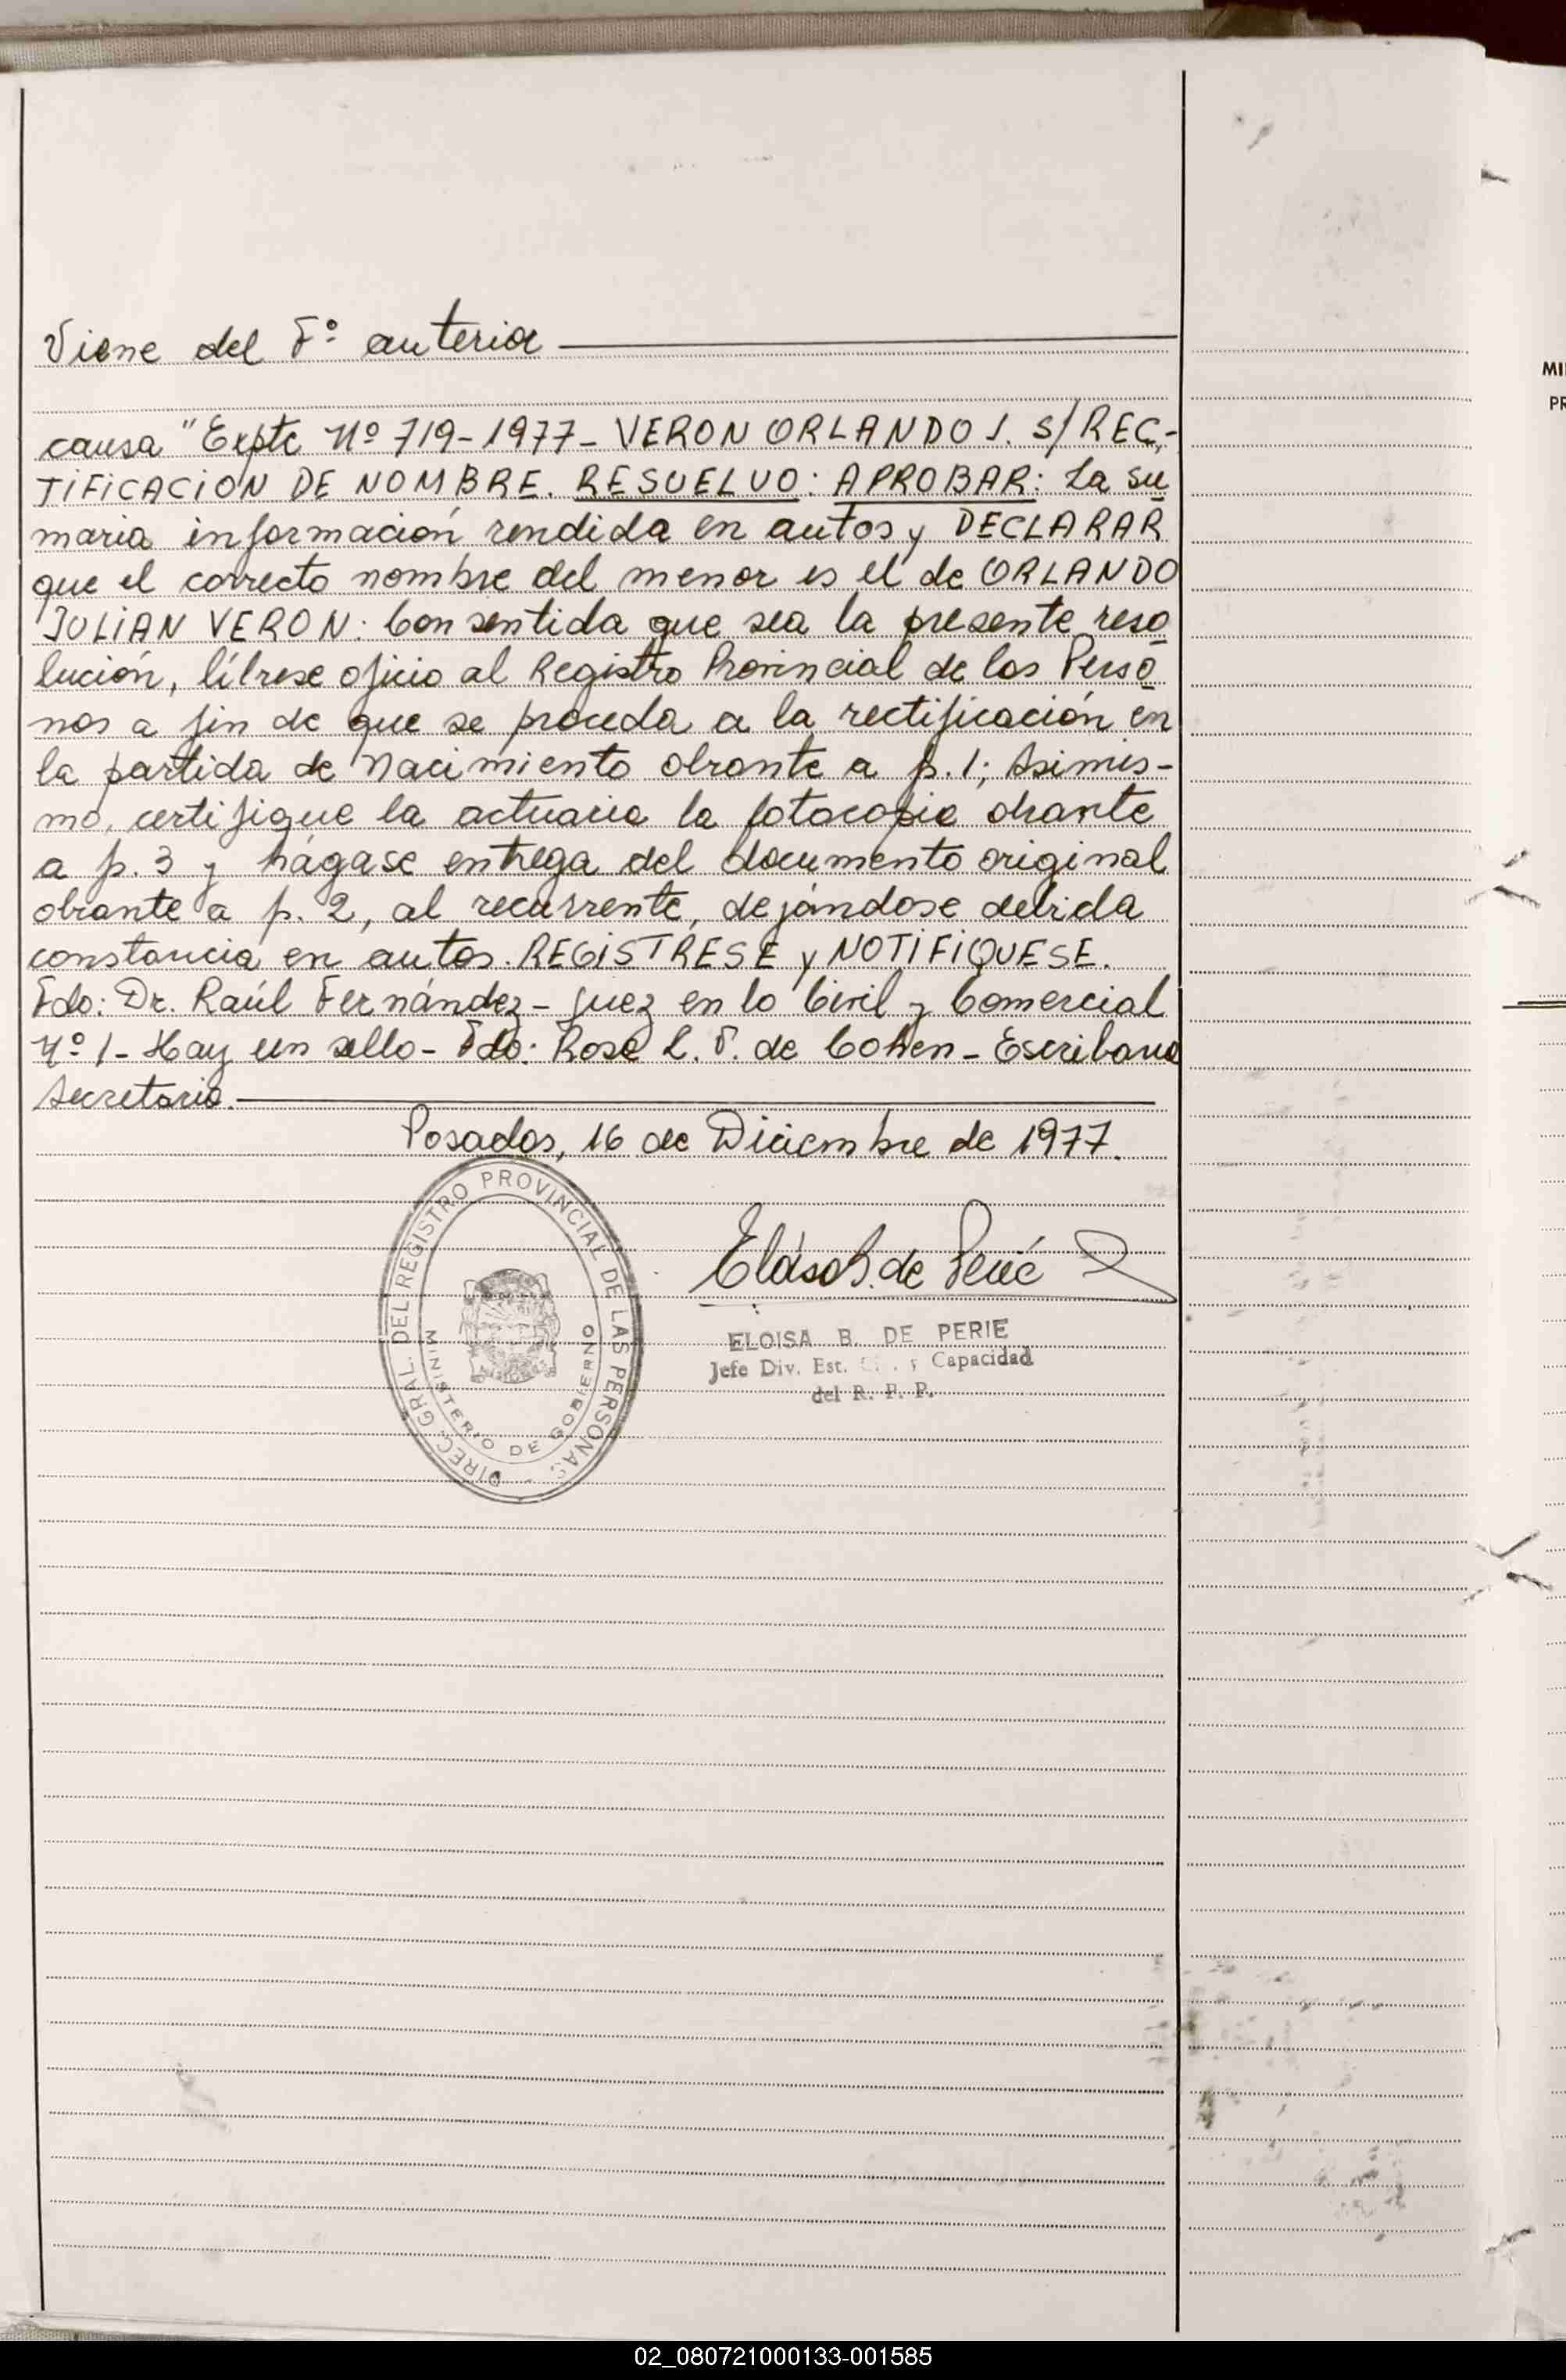 Viene del Fº anterior
causa "Expte Nº 719-1977- VERON ORLANDO J. S/REC-
TIFICACION DE NOMBRE. RESUELVO: APROBAR: La su
maria información rendida en autos y DECLARAR
que el correcto nombre del menor es el de ORLANDO
JULIAN VERON: Consentida que sea la presente reso
lución, líbrese oficio al Registro Provincial de las Perso
nas a fin de que se proceda a la rectificación en
la partida de Nacimiento obrante a p. 1; Asimis-
mo, certifique la actuaria la fotocopia obrante
a p. 3 y hágase entrega del documento original
obrante a p. 2, al recurrente, dejándose debida
constancia en autos. REGISTRESE y NOTIFIQUESE.
Fdo: Dr. Raúl Fernández - Juez en lo Civil y Comercial
Nº 1- Hay un sello- Fdo: Rosa L. F. de Cohen - Escribana
Secretaria.
Posadas, 16 de Diciembre de 1977.
DIREC. GRAL. DEL REGISTRO PROVINCIAL DE LAS PERSONAS
MINISTERIO DE GOBIERNO
ELOISA B. DE PERIE
Jefe Div. Est. y Capacidad
del R. P. P.
MI
PR
02_080721000133-001585